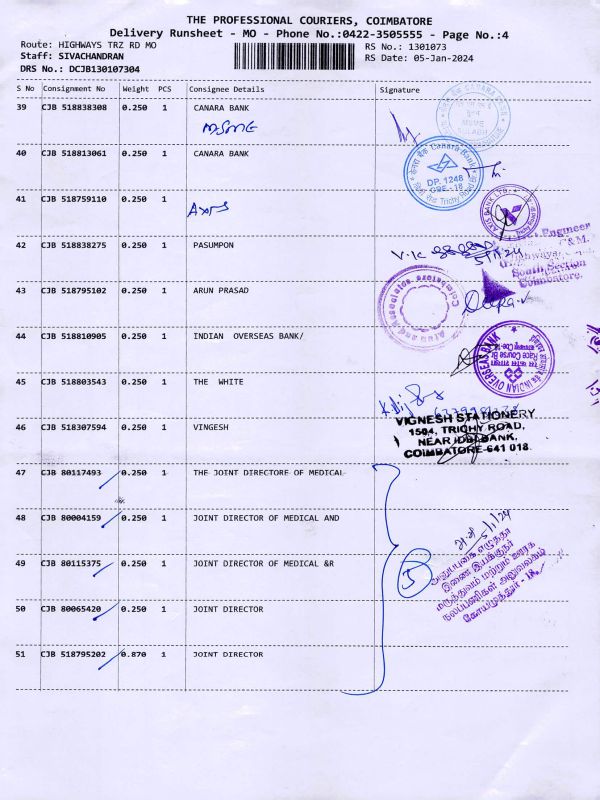 THE PROFESSIONAL COURIERS, COIMBATORE
Delivery Runsheet - MO - Phone No.:0422-3505555 - Page No.:4
Route: HIGHWAYS TRZ RD MO RS No.: 1301073
Staff: SIVACHANDRAN RS Date: 05-Jan-2024
DRS No.: DCJB130107304
S No Consignment No Weight PCS Consignee Details Signature
39 CJB 518838308 0.250 1 CANARA BANK
MSME
40 CJB 518813061 0.250 1 CANARA BANK
Canara Bank
DP. 1248
CBE.-18
Trichy Road Br
41 CJB 518759110 0.250 1
Axis
AXIS BANK LTD
42 CJB 518838275 0.250 1 PASUMPON
Engineer
C&M.
South Section
Coimbatore.
43 CJB 518795102 0.250 1 ARUN PRASAD
Arun and Associates
Coimbatore
44 CJB 518810905 0.250 1 INDIAN OVERSEAS BANK/
INDIAN OVERSEAS BANK
Race Course Br
45 CJB 518803543 0.250 1 THE WHITE
46 CJB 518307594 0.250 1 VINGESH
VIGNESH STATIONERY
1504, TRICHY ROAD,
NEAR IDBI BANK,
COIMBATORE-641 018.
47 CJB 80117493 0.250 1 THE JOINT DIRECTORE OF MEDICAL
48 CJB 80004159 0.250 1 JOINT DIRECTOR OF MEDICAL AND
49 CJB 80115375 0.250 1 JOINT DIRECTOR OF MEDICAL &R
50 CJB 80065420 0.250 1 JOINT DIRECTOR
51 CJB 518795202 0.870 1 JOINT DIRECTOR
5
5/1/24
இணை இயக்குநர்
மருத்துவம் மற்றும் ஊரக
நலப்பணிகள் அலுவலகம்
கோயமுத்தூர் - 18.